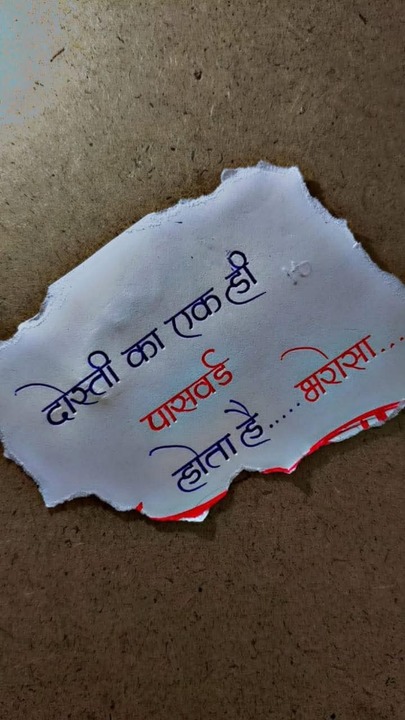 दोस्ती का एक ही
पासवर्ड
होता है..... भरोसा....